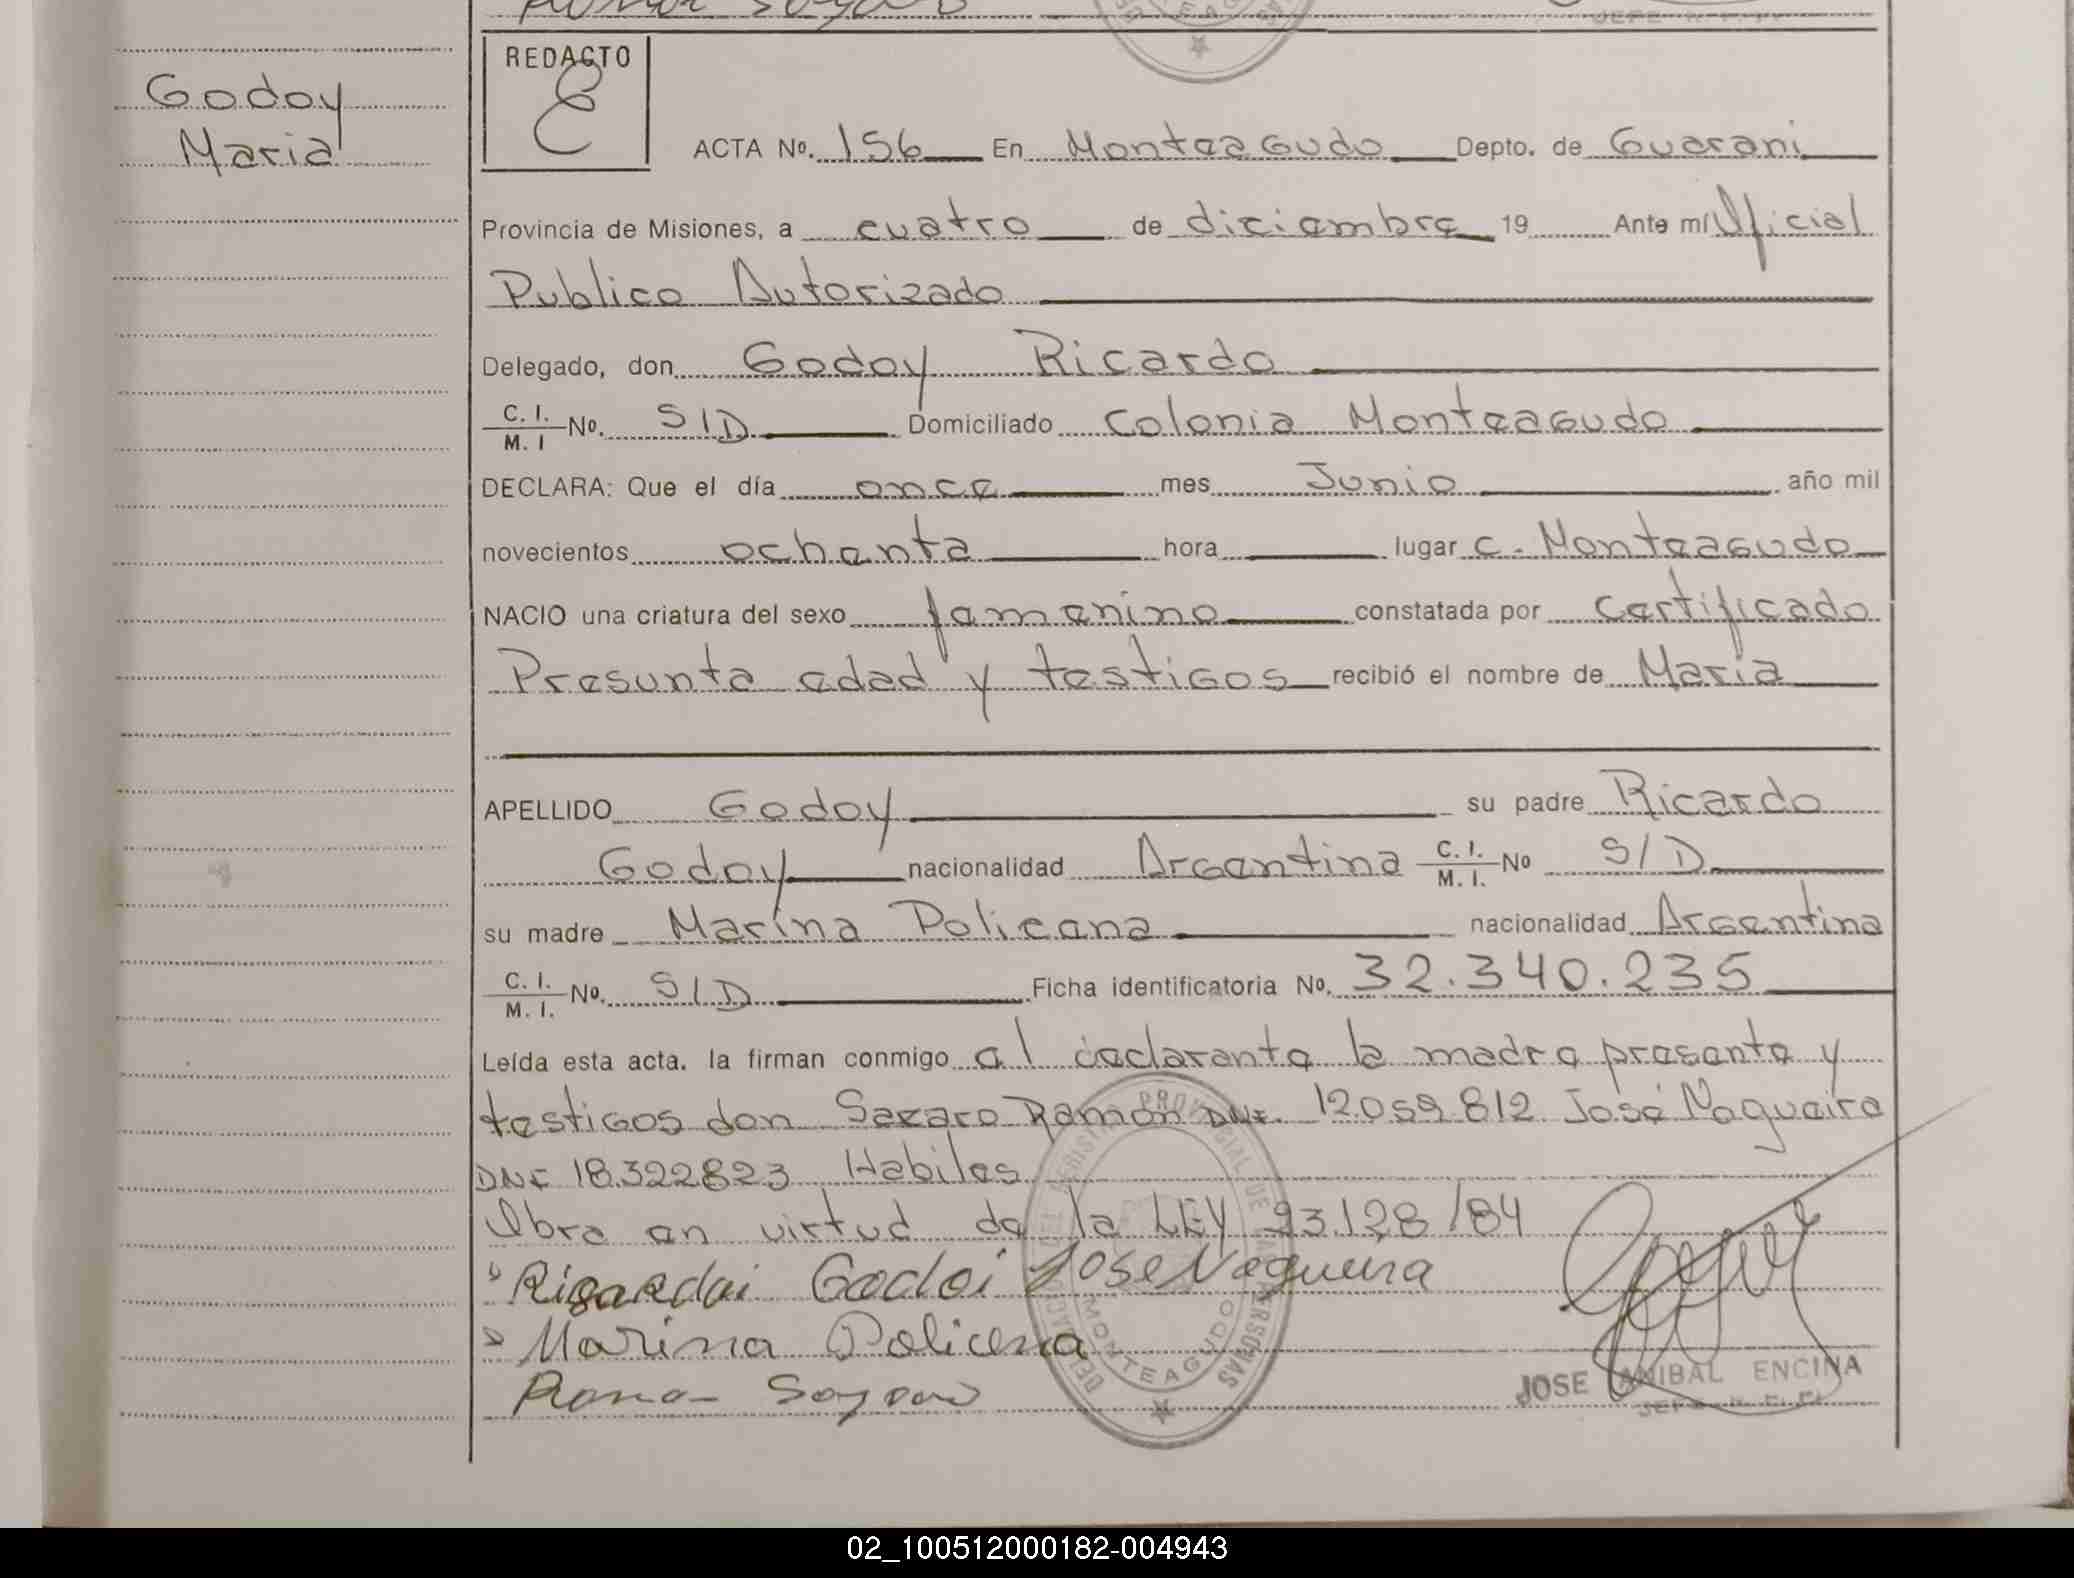 REDACTO
E
Godoy
Maria
ACTA No. 156 En Monteagudo Depto. de Guarani
Provincia de Misiones, a cuatro de diciembre 19 Ante mí Oficial
Publico Autorizado
Delegado, don Godoy Ricardo
C. I. / M. I No. S/D Domiciliado Colonia Monteagudo
DECLARA: Que el día once mes Junio año mil
novecientos ochenta hora lugar C. Monteagudo
NACIO una criatura del sexo femenino constatada por Certificado
Presunta edad y testigos recibió el nombre de Maria
APELLIDO Godoy su padre Ricardo
Godoy nacionalidad Argentina C. I. / M. I. No S/D
su madre Marina Policena nacionalidad Argentina
C. I. / M. I. No. S/D Ficha identificatoria No. 32.340.235
Leída esta acta, la firman conmigo el declarante la madre presente y
testigos don Ramón DNI. 12.059.812 José Nogueira
DNI 18.322823 Habiles
Obra en virtud de la LEY 23.128/84
Ricardoi Godoi Jose Nogueira
Marina Policena
JOSE ANIBAL ENCINA
PROVINCIAL DE LAS PERSONAS
MONTEAGUDO
02_100512000182-004943